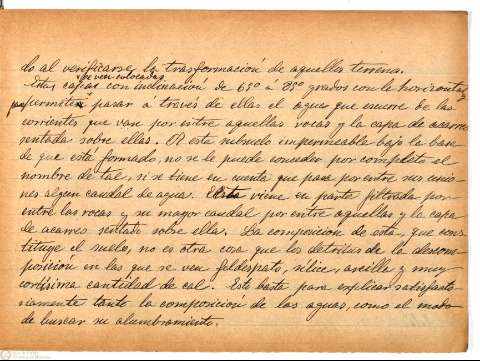 do al verificarse la trasformación de aquellos terrenos.
se ven colocadas
Estas capas con inclinación de 65º á 75º grados con la horizontal,
permeten pasar a través de ellas el agua que escurre de las
corrientes que van por entre aquellas rocas y la capa de acarreo
sentada sobre ellas. A este subsuelo impermeable bajo la base
de que esta formado, no se le puede conceder por completo el
nombre de tal, si se tiene en cuenta que pasa por entre sus unio-
nes algun caudal de agua. Esta viene en parte filtrada por
entre las rocas y su mayor caudal por entre aquellas y la capa
de acarreo sentado sobre ella. La composición de esta, que cons
tituye el suelo, no es otra cosa que los detritus de la descom-
posición en las que se ven feldespato, silice, arcilla y muy
cortísima cantidad de cal. Esto basta para explicar satisfacto
riamente tanto la composición de las aguas, como el modo
de buscar su alumbramiento.